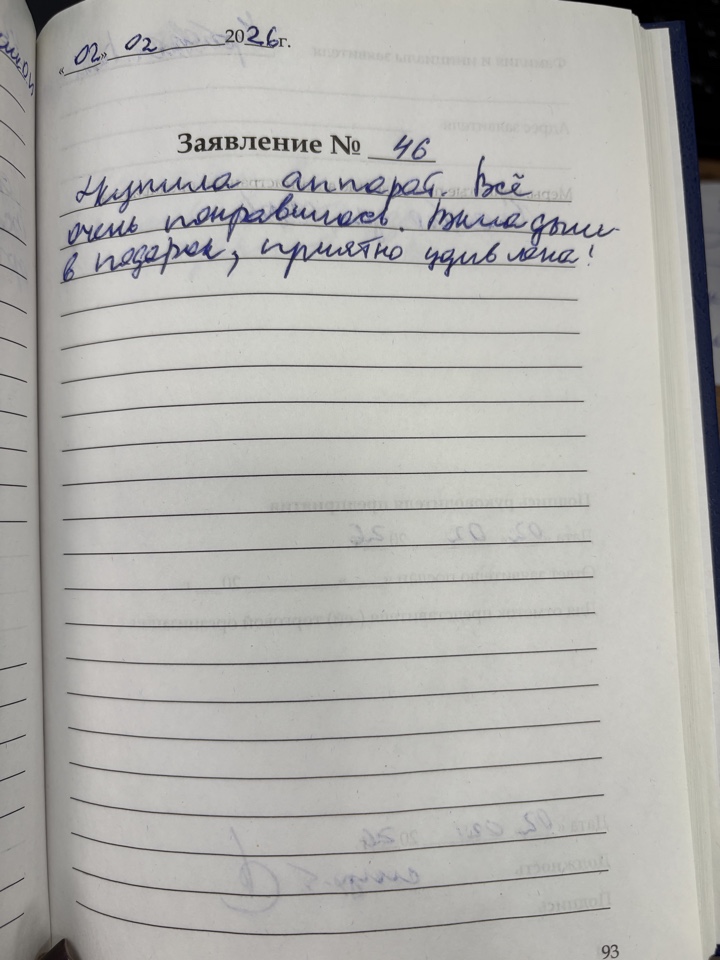 «02» 02 2026г.
Заявление № 46
купила аппарат. Всё
очень понравилось.
в подарок, приятно удивлена!
93